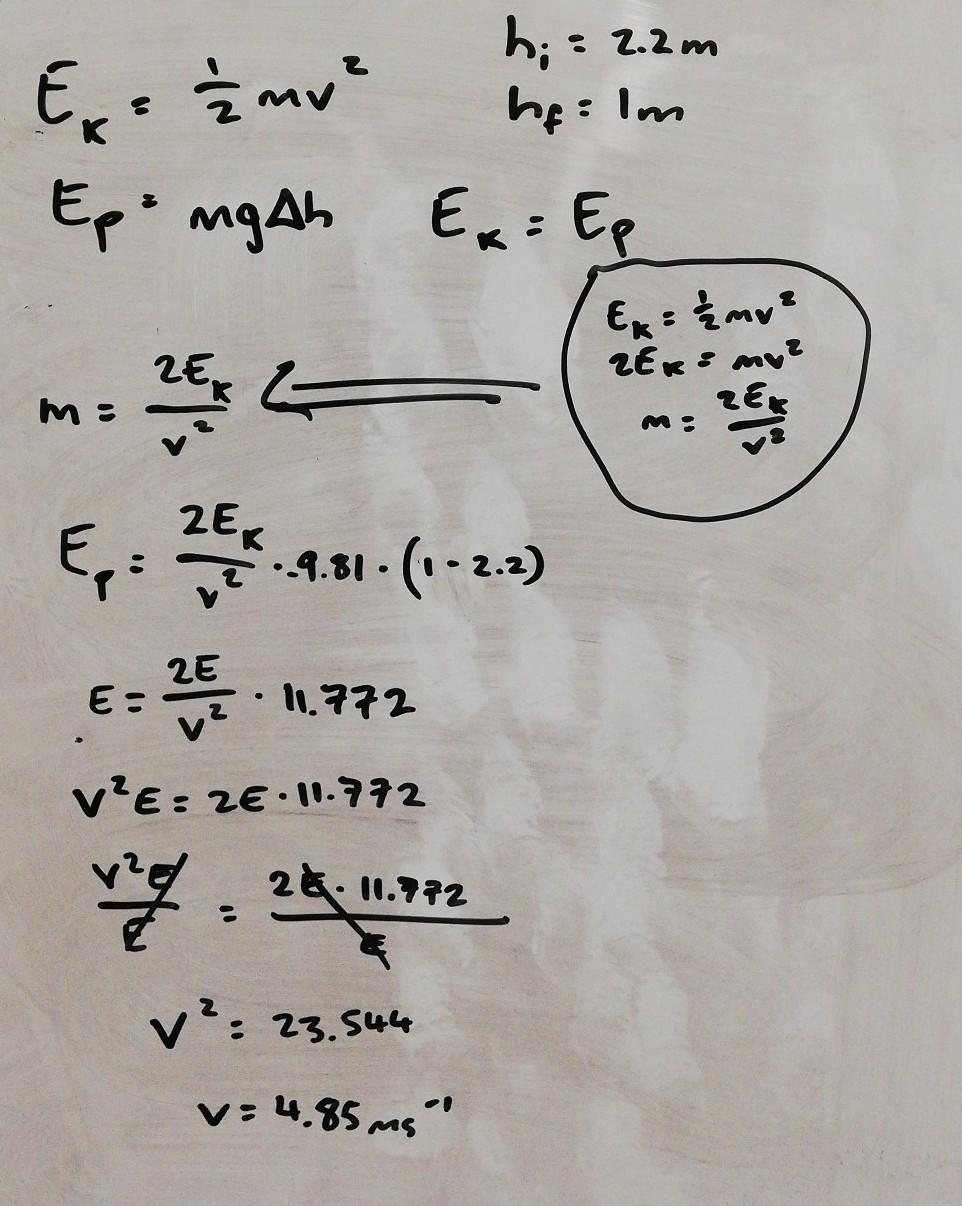 hᵢ = 2.2m
E_K = ½mv²
h_f = 1m
E_p = mgΔh
E_K = E_p
E_K = ½mv²
2E_K = mv²
m = 2E_K/v²
m = 2E_K/v²
E_p = 2E_K/v² · -9.81 · (1 - 2.2)
E = 2E/v² · 11.772
v²E = 2E · 11.772
v²E/E = 2E · 11.772/E
v² = 23.544
v = 4.85 ms⁻¹